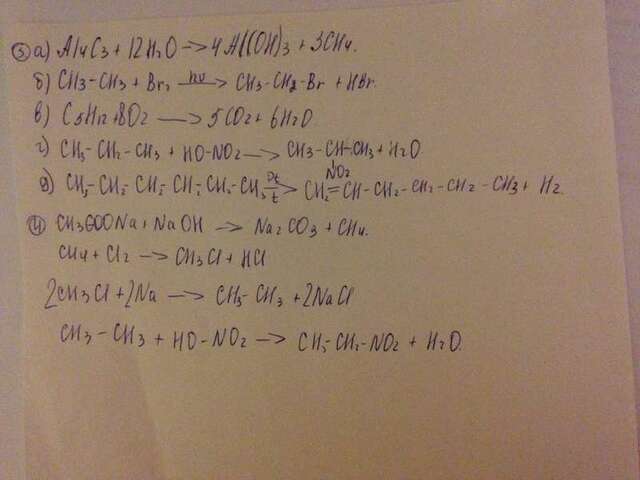 ③ а) Al4C3 + 12H2O —> 4Al(OH)3 + 3CH4.
б) CH3-CH3 + Br2 —hν—> CH3-CH2-Br + HBr.
в) C5H12 + 8O2 —> 5CO2 + 6H2O.
г) CH3-CH2-CH3 + HO-NO2 —> CH3-CH-CH3 + H2O
NO2
д) CH3-CH2-CH2-CH2-CH2-CH3 —Pt/t—> CH2=CH-CH2-CH2-CH2-CH3 + H2.
④ CH3COONa + NaOH —> Na2CO3 + CH4.
CH4 + Cl2 —> CH3Cl + HCl
2CH3Cl + 2Na —> CH3-CH3 + 2NaCl
CH3-CH3 + HO-NO2 —> CH3-CH2-NO2 + H2O.